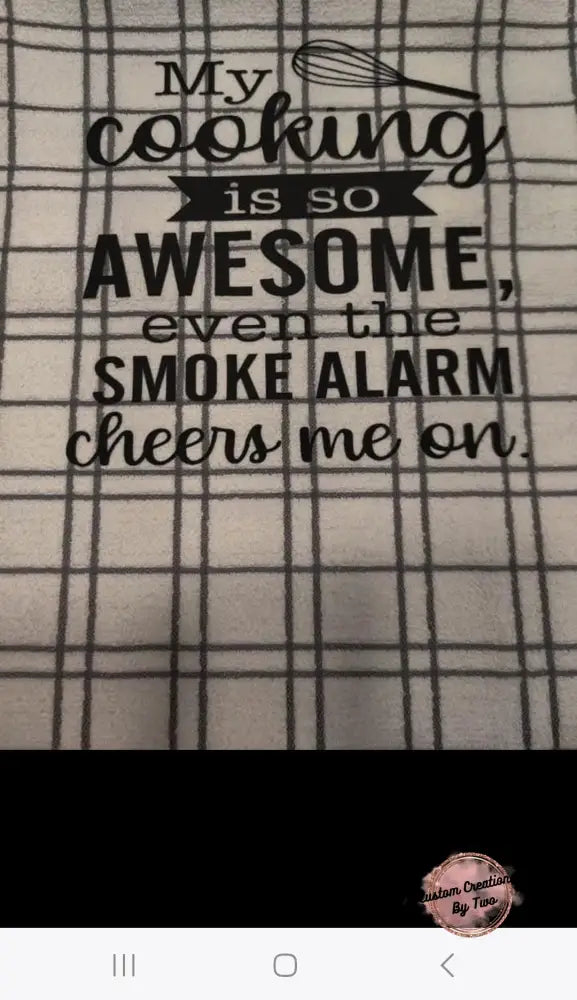 My
cooking
is so
AWESOME,
even the
SMOKE ALARM
cheers me on.
ustom Creation
By Two